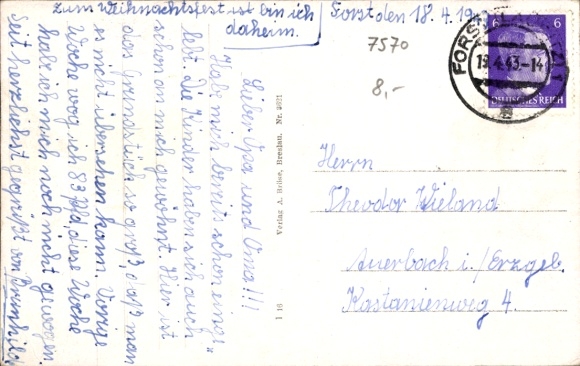 zum Weihnachtsfest ist bin ich
daheim.
Forst den 18.4.19
7570
8,-
FORST
19.4.43-14
6 6
DEUTSCHES REICH
Lieber Opa und Oma!!!
Habe mich bereits schon einge-
lebt. Die Kinder haben sich auch
schon an mich gewöhnt. Hier ist
das Grundstück so groß, daß man
es nicht übersehen kann. Vorige
Woche wog ich 83 Pfd, diese Woche
habe ich mich noch nicht gewogen.
Seit herzlichst gegrüßt von Brunhilde
Verlag A. Heise, Breslau, Nr. 2621
I 16
Herrn
Theodor Wieland
Auerbach i./Erzgeb.
Kastanienweg 4.